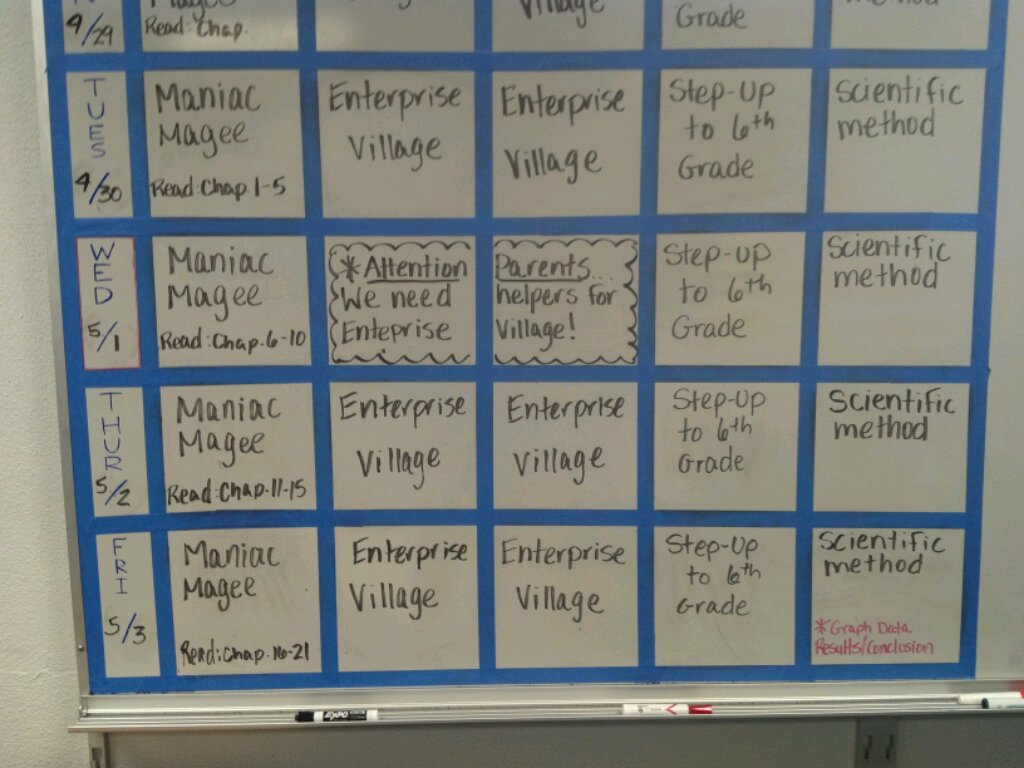 4/29
Magee
Read: Chap.
Enterprise
Village
Village
Grade
method
TUES
4/30
Maniac
Magee
Read: Chap. 1-5
Enterprise
Village
Enterprise
Village
Step-Up
to 6th
Grade
Scientific
method
WED
5/1
Maniac
Magee
Read: Chap. 6-10
*Attention
We need
Enteprise
Parents...
helpers for
Village!
Step-Up
to 6th
Grade
Scientific
method
THUR
5/2
Maniac
Magee
Read: Chap. 11-15
Enterprise
Village
Enterprise
Village
Step-Up
to 6th
Grade
Scientific
method
FRI
5/3
Maniac
Magee
Read: Chap. 16-21
Enterprise
Village
Enterprise
Village
Step-Up
to 6th
Grade
Scientific
method
*Graph Data
Results/Conclusion
EXPO